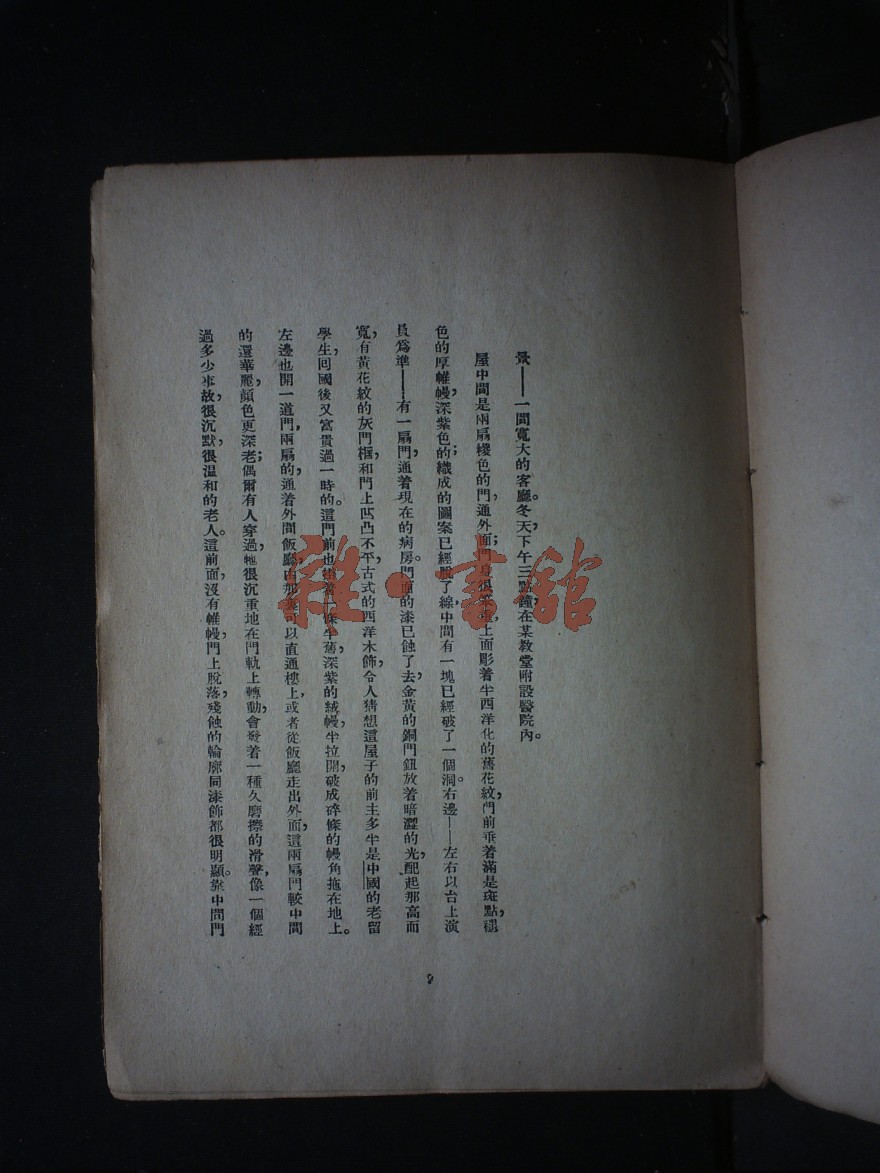 景——一間寬大的客廳。冬天,下午三點鐘,在某教堂附設醫院內。
屋中間是兩扇棕色的門,通外面;門身很笨重,上面彫着半西洋化的舊花紋,門前垂着滿是斑點,褪
色的厚帷幔,深紫色的;織成的圖案已經脫了線,中間有一塊已經破了一個洞。右邊——左右以台上演
員爲準——有一扇門,通着現在的病房。門面的漆已蝕了去,金黃的銅門鈕放着暗澀的光,配起那高而
寬,有黃花紋的灰門框,和門上凹凸不平,古式的西洋木飾,令人猜想這屋子的前主多半是中國的老留
學生,回國後又富貴過一時的。這門前也掛着一條半舊,深紫的絨幔,半拉開,破成碎條的幔角拖在地上。
左邊也開一道門,兩扇的,通着外間飯廳,由那裏可以直通樓上,或者從飯廳走出外面,這兩扇門較中間
的還華麗,顏色更深老;偶爾有人穿過,牠很沉重地在門軌上轉動,會發着一種久磨擦的滑聲,像一個經
過多少事故,很沉默,很溫和的老人。這前面,沒有帷幔,門上脫落,殘蝕的輪廓同漆飾都很明顯。靠中間門
雜·書館